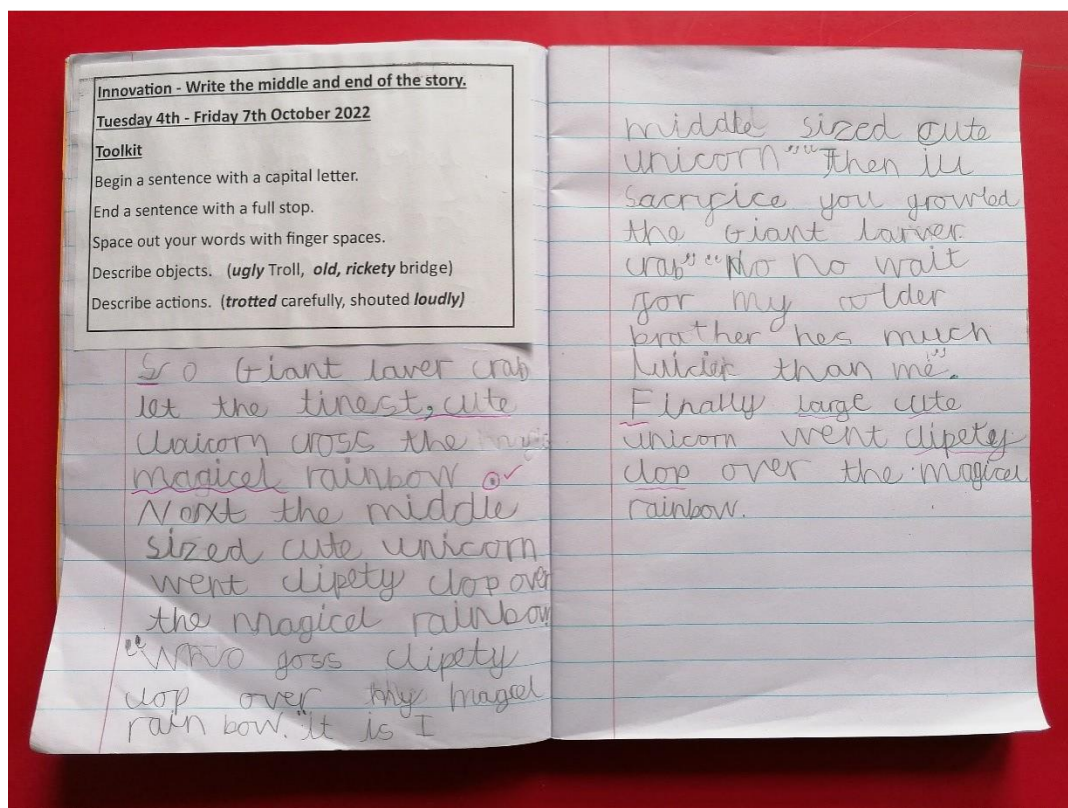 Innovation - Write the middle and end of the story.
Tuesday 4th - Friday 7th October 2022
Toolkit
Begin a sentence with a capital letter.
End a sentence with a full stop.
Space out your words with finger spaces.
Describe objects. (ugly Troll, old, rickety bridge)
Describe actions. (trotted carefully, shouted loudly)
So Giant laver crab
let the tinest, cute
unicorn cross the
magicel rainbow.
Next the middle
sized cute unicorn
went clipety clop over
the magicel rainbow
"Who goss clipety
clop over my magcel
rain bow." it is I
middle sized cute
unicorn" "Then ill
Sacrifice you growled
the Giant larver
crab" "No No wait
for my older
brather hes much
than me".
Finally large cute
unicorn went clipety
clop over the magicel
rainbow.